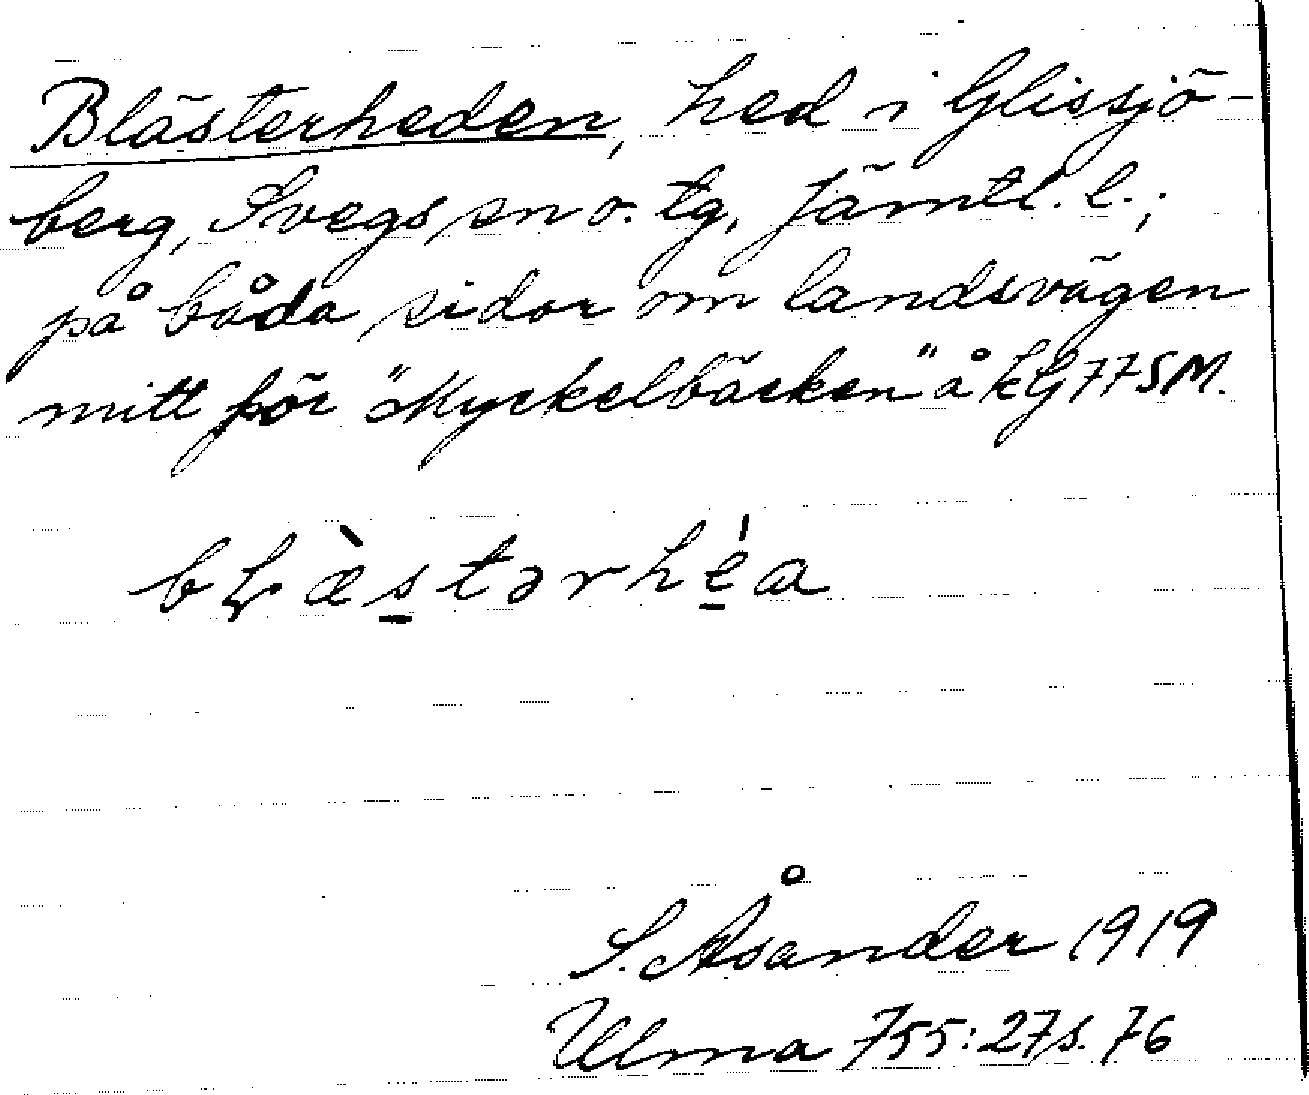 Blästerheden, hed i Glissjö-
berg, Svegs sn o. tg, Jämtl. l.;
på båda sidor om landsvägen
mitt för "Myckelbäcken" å EG 77 SM.
bḷæ̀s̲tərhe̲̍a
S. Åsander 1919
Ulma 755:27 s. 76